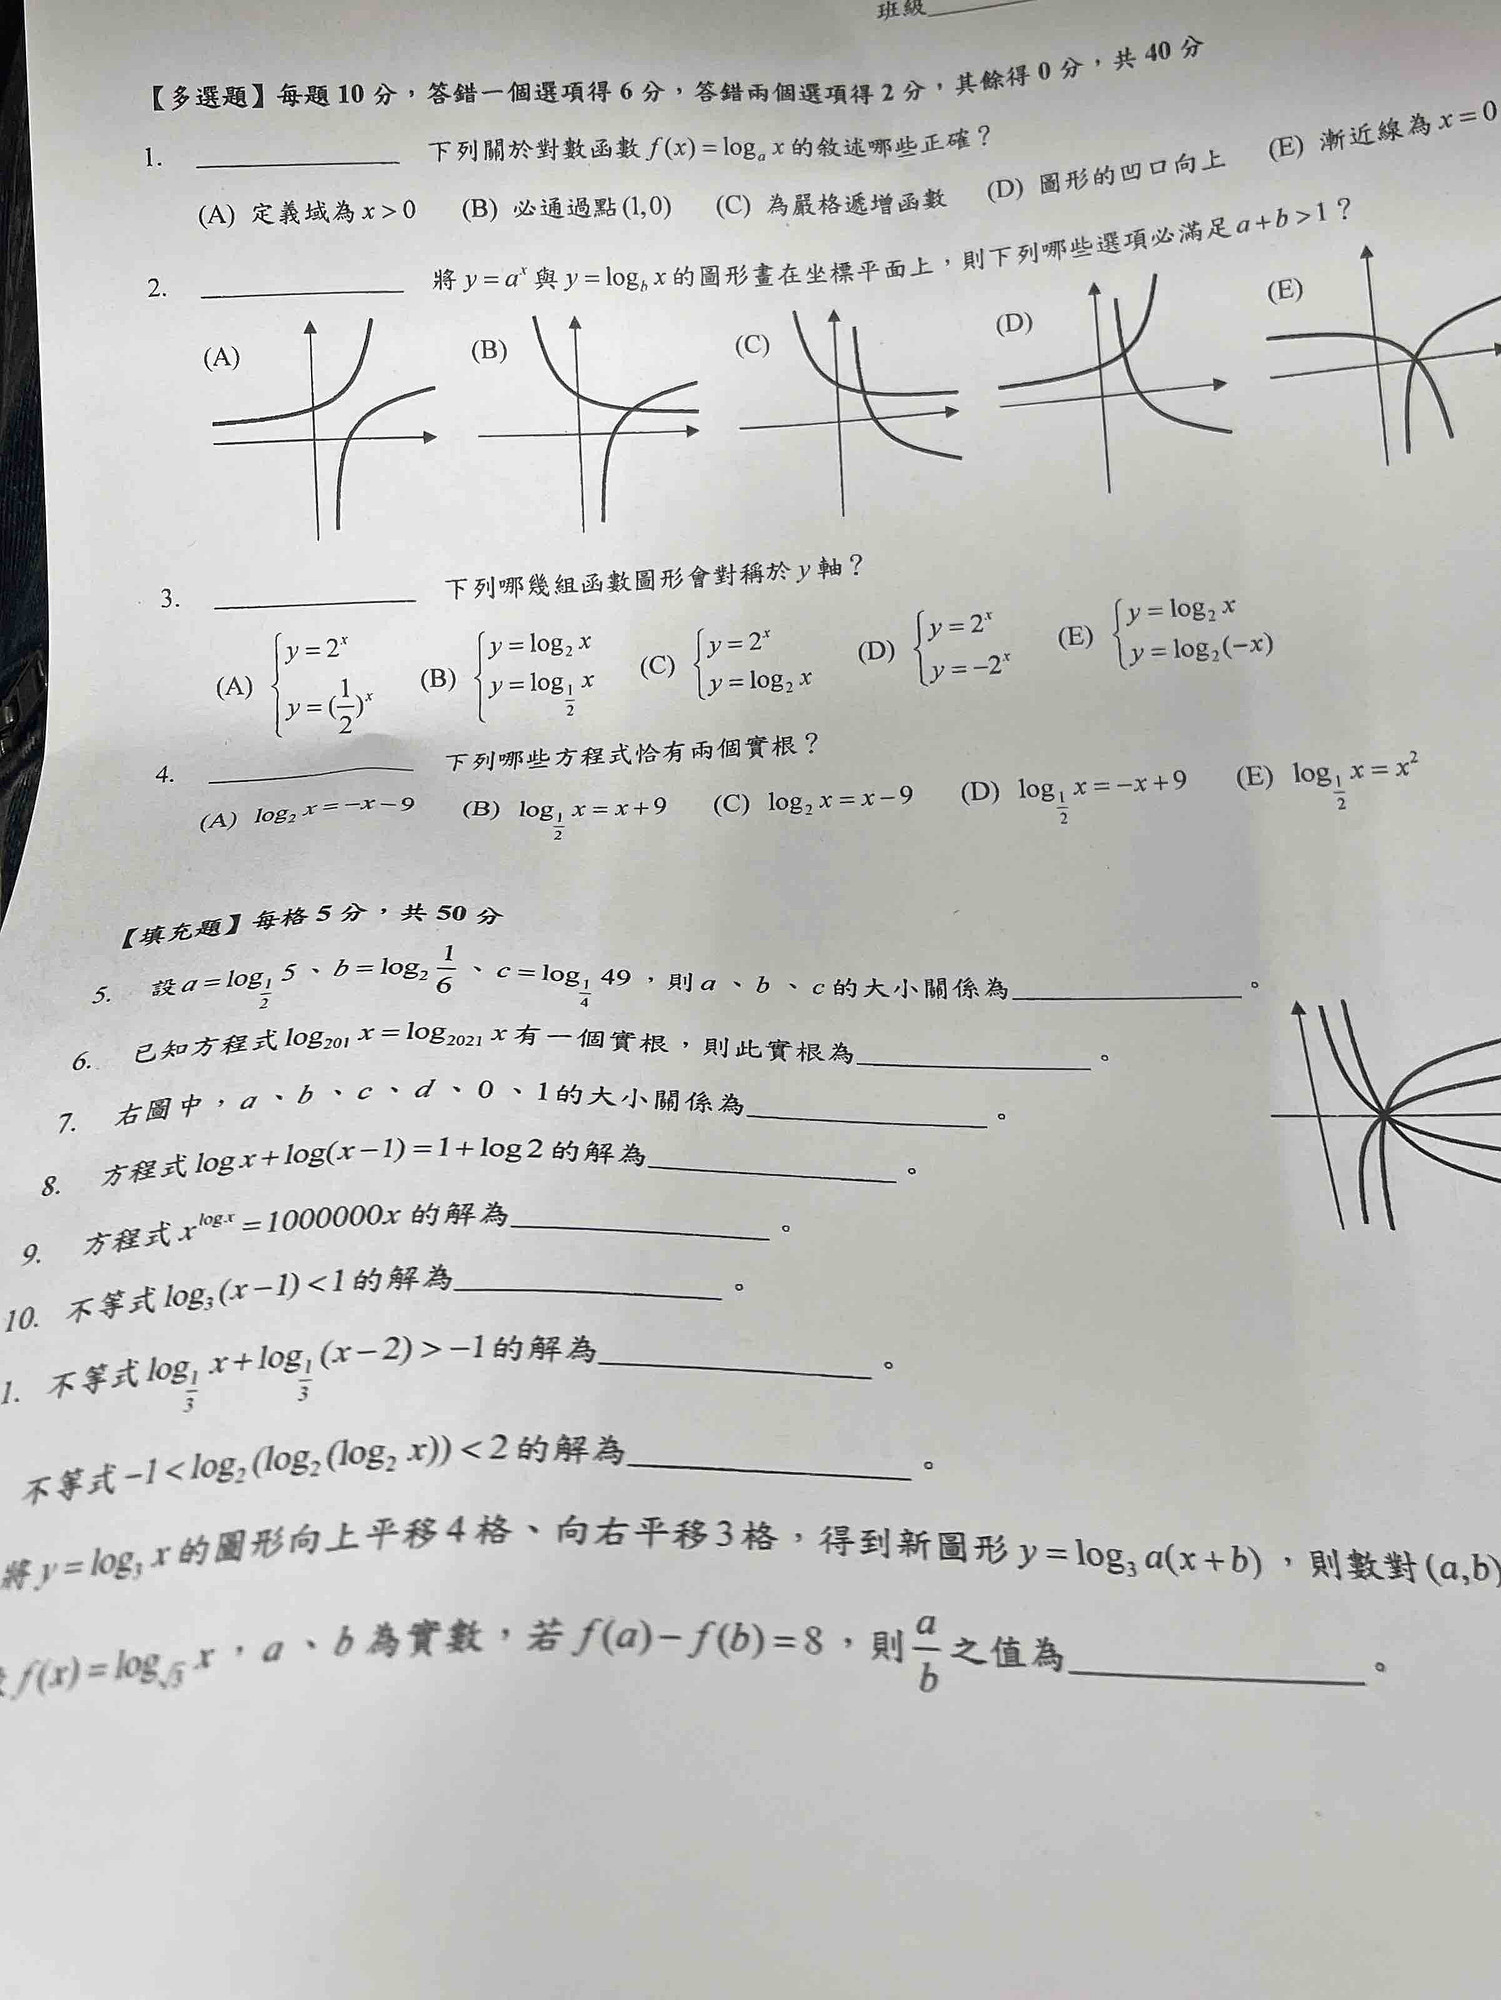 班級
【多選題】每題 10 分，答錯一個選項得 6 分，答錯兩個選項得 2 分，其餘得 0 分，共 40 分
1. ________ 下列關於對數函數 f(x) = logₐ x 的敘述哪些正確？
(A) 定義域為 x > 0 (B) 必通過點 (1,0) (C) 為嚴格遞增函數 (D) 圖形的凹口向上 (E) 漸近線為 x = 0
2. ________ 將 y = a^x 與 y = log_b x 的圖形畫在坐標平面上，則下列哪些選項必滿足 a + b > 1？
(A) (B) (C) (D) (E)
3. ________ 下列哪幾組函數圖形會對稱於 y 軸？
(A) { y = 2^x, y = (1/2)^x (B) { y = log_2 x, y = log_{1/2} x (C) { y = 2^x, y = log_2 x (D) { y = 2^x, y = -2^x (E) { y = log_2 x, y = log_2(-x)
4. ________ 下列哪些方程式恰有兩個實根？
(A) log_2 x = -x - 9 (B) log_{1/2} x = x + 9 (C) log_2 x = x - 9 (D) log_{1/2} x = -x + 9 (E) log_{1/2} x = x^2
【填充題】每格 5 分，共 50 分
5. 設 a = log_{1/2} 5、b = log_2 1/6、c = log_{1/4} 49，則 a、b、c 的大小關係為________。
6. 已知方程式 log_{201} x = log_{2021} x 有一個實根，則此實根為________。
7. 右圖中，a、b、c、d、0、1 的大小關係為________。
8. 方程式 log x + log(x-1) = 1 + log 2 的解為________。
9. 方程式 x^{log x} = 1000000x 的解為________。
10. 不等式 log_3(x-1) < 1 的解為________。
1. 不等式 log_{1/3} x + log_{1/3}(x-2) > -1 的解為________。
不等式 -1 < log_2(log_2(log_2 x)) < 2 的解為________。
將 y = log_3 x 的圖形向上平移 4 格、向右平移 3 格，得到新圖形 y = log_3 a(x+b)，則數對 (a,b)
f(x) = log_{√3} x，a、b 為實數，若 f(a) - f(b) = 8，則 a/b 之值為________。